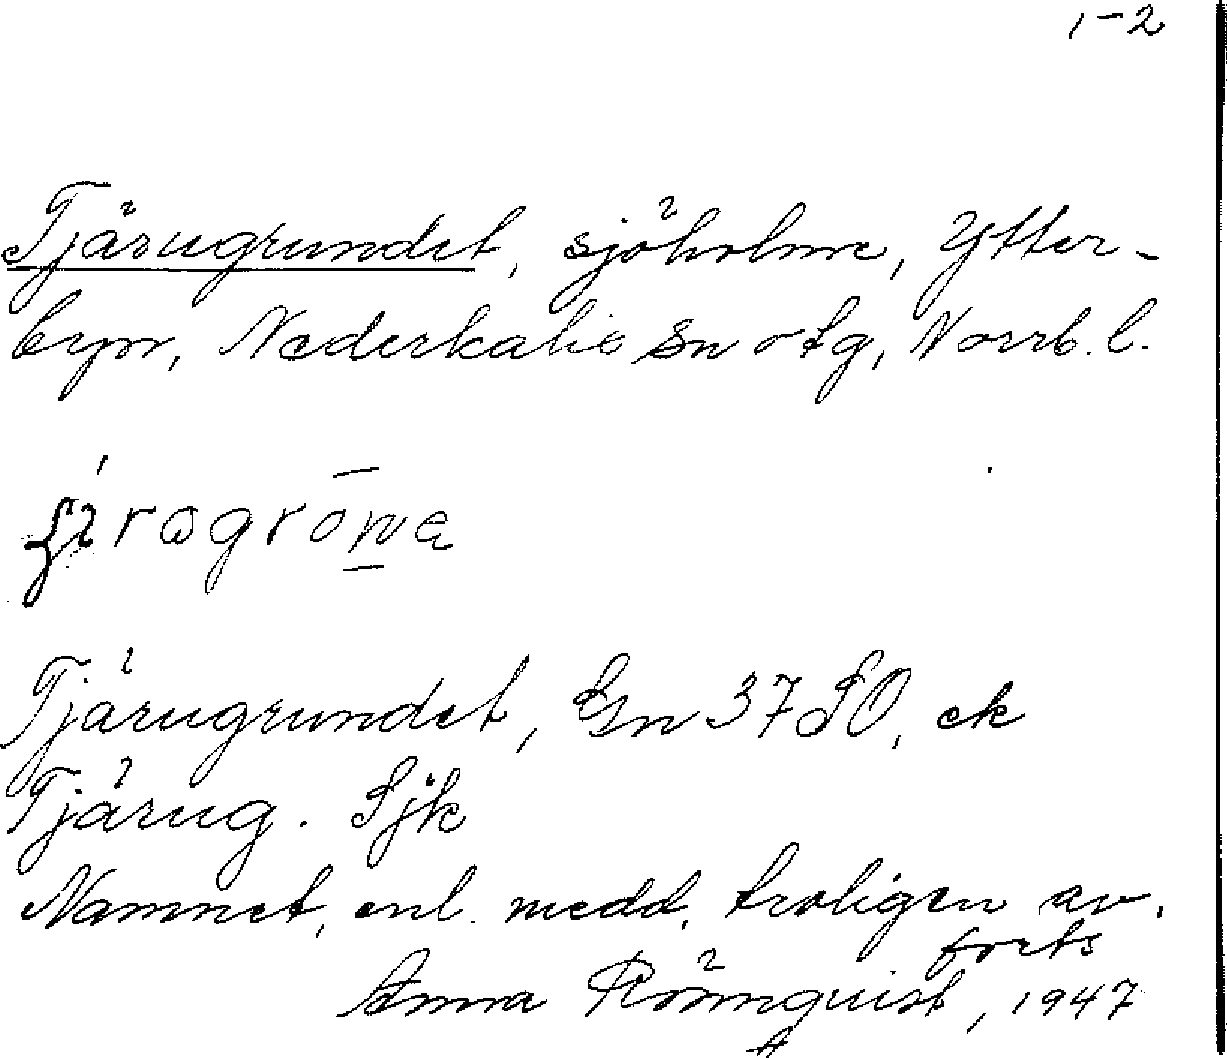 1-2
Tjärugrundet, sjöholme, Ytter-
byn, Nederkalix sn o tg, Norrb. l.
Tjärugrundet, Gn 37 SO, ek
Tjärug. Sjk
Namnet, enl. medd. troligen av.
forts
Anna Rönnquist, 1947